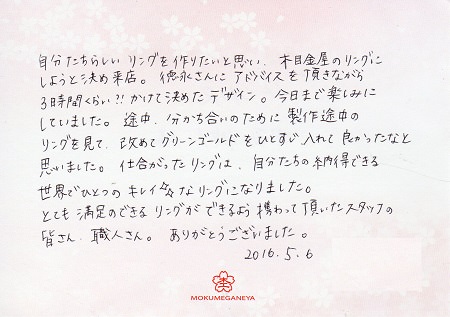 自分たちらしいリングを作りたいと思い、杢目金屋のリングに
しようと決め来店。徳永さんにアドバイスを頂きながら
3時間くらい?!かけて決めたデザイン。今日まで楽しみに
していました。途中、分かち合いのために製作途中の
リングを見て、改めてグリーンゴールドをひとすじ入れて良かったなと
思いました。仕合がったリングは、自分たちの納得できる
世界でひとつのキレイなリングになりました。
とても満足のできるリングができるよう携わって頂いたスタッフの
皆さん、職人さん。ありがとうございました。
2016.5.6
MOKUMEGANEYA